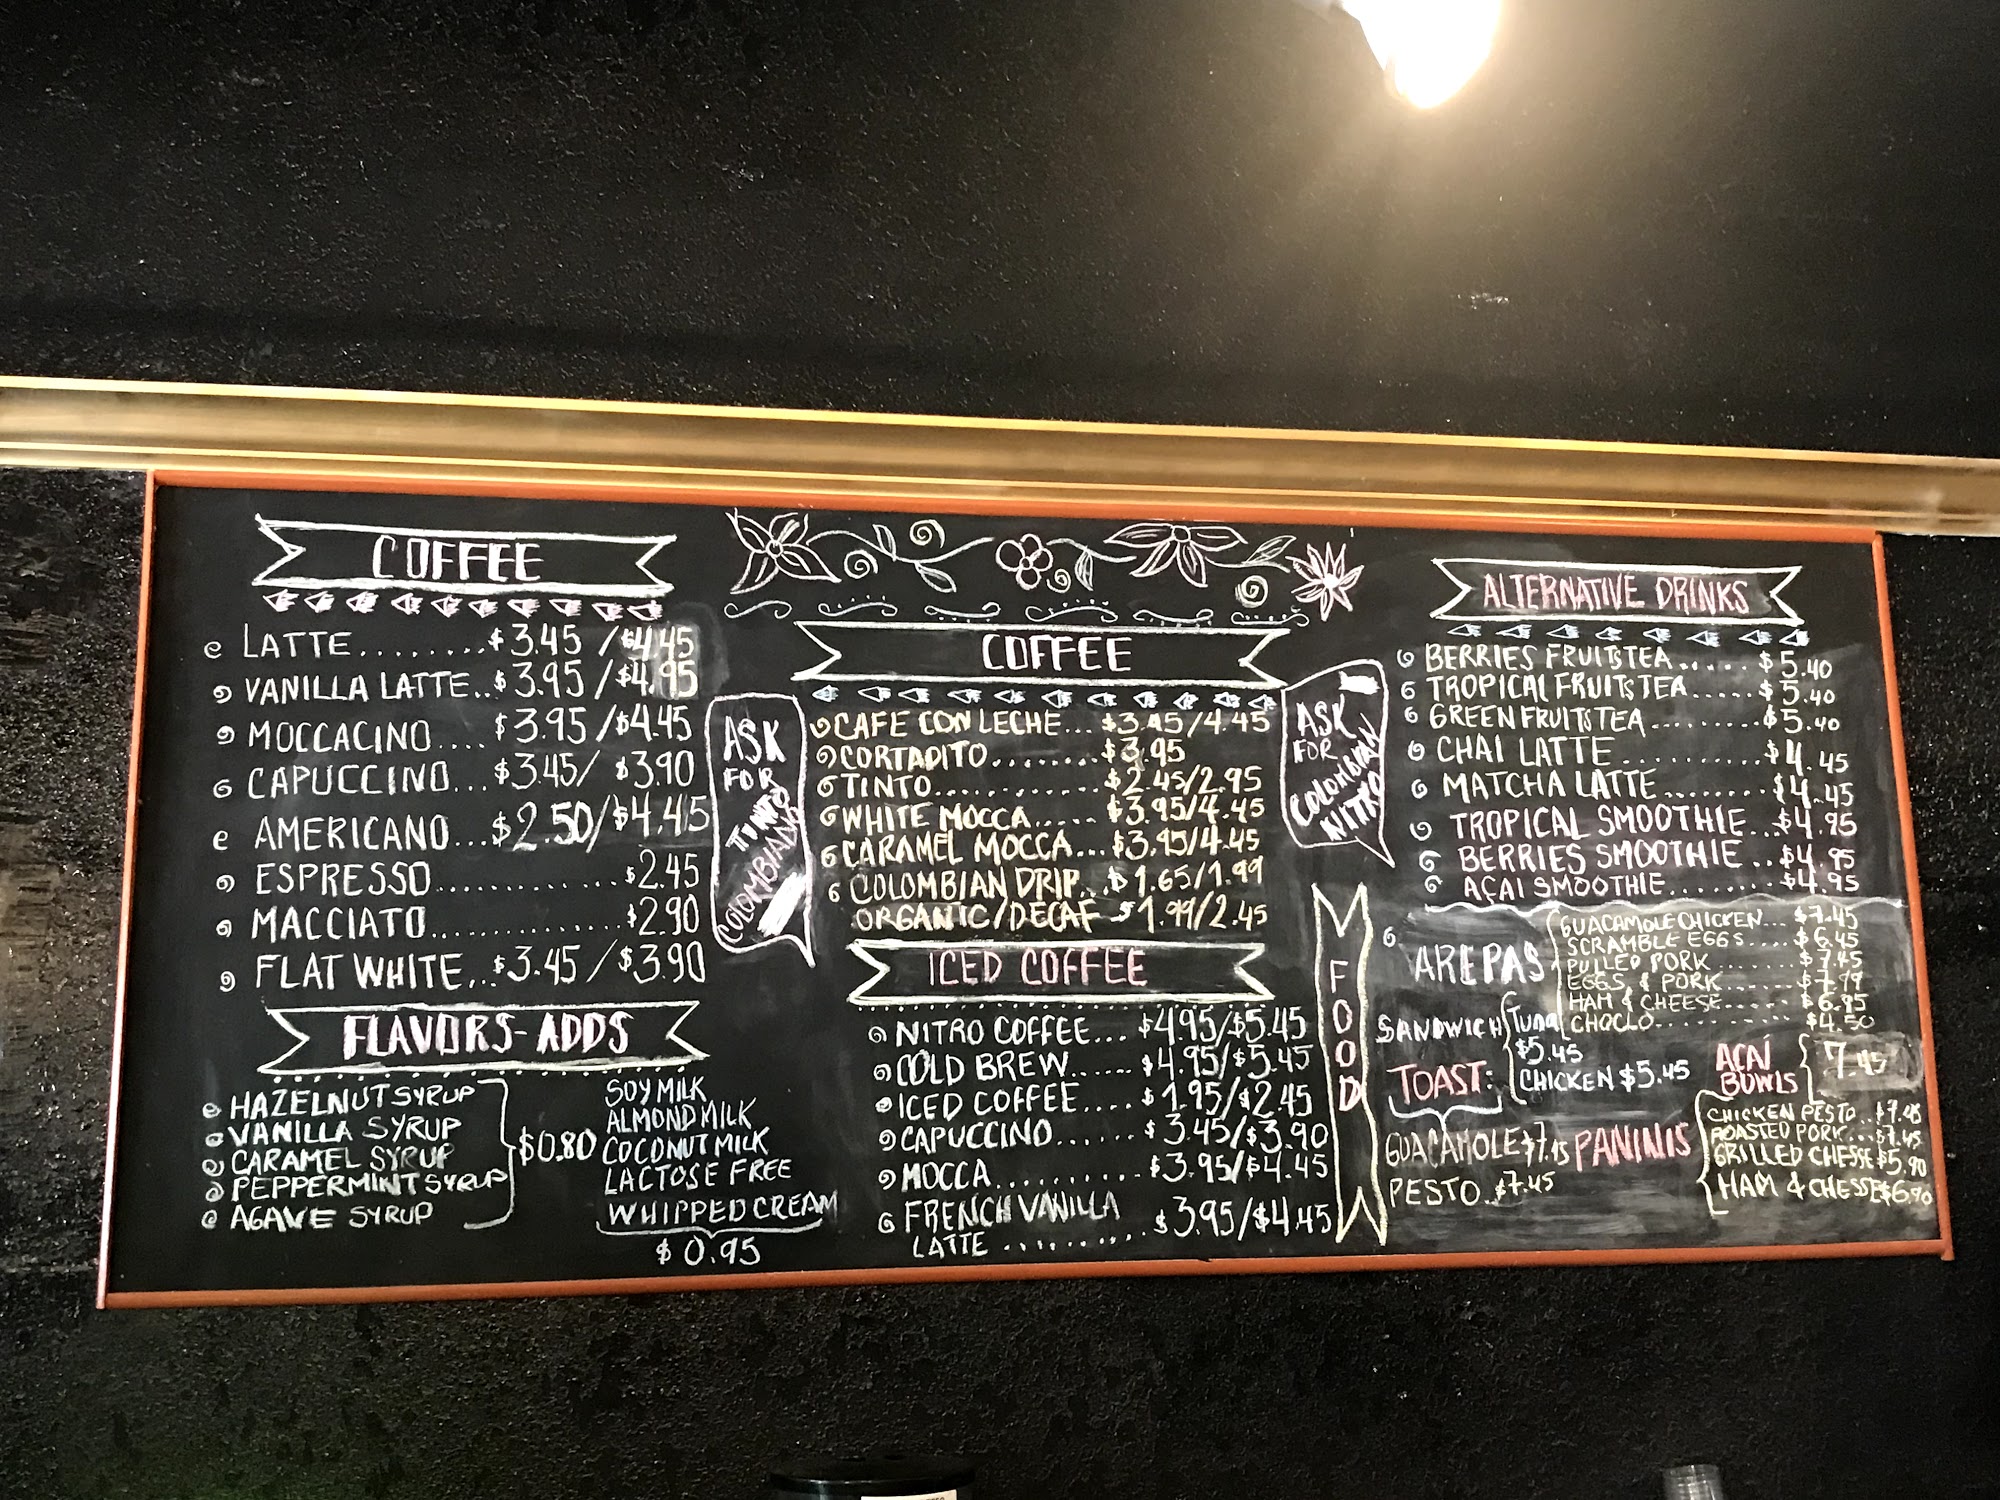 COFFEE
LATTE........$3.45/$4.45
VANILLA LATTE..$3.95/$4.95
MOCCACINO....$3.95/$4.45
CAPUCCINO...$3.45/$3.90
AMERICANO...$2.50/$4.45
ESPRESSO.............$2.45
MACCIATO..............$2.90
FLAT WHITE...$3.45/$3.90
FLAVORS-ADDS
HAZELNUT SYRUP
VANILLA SYRUP
CARAMEL SYRUP
PEPPERMINT SYRUP
AGAVE SYRUP
$0.80
SOY MILK
ALMOND MILK
COCONUT MILK
LACTOSE FREE
WHIPPED CREAM
$0.95
ASK
FOR
TINTO
COLOMBIANO
COFFEE
CAFE CON LECHE...$3.45/4.45
CORTADITO........$3.95
TINTO.............$2.45/2.95
WHITE MOCCA.....$3.95/4.45
CARAMEL MOCCA...$3.95/4.45
COLOMBIAN DRIP..$1.65/1.99
ORGANIC/DECAF $1.99/2.45
ICED COFFEE
NITRO COFFEE...$4.95/$5.45
COLD BREW......$4.95/$5.45
ICED COFFEE....$1.95/$2.45
CAPUCCINO......$3.45/$3.90
MOCCA...........$3.95/$4.45
FRENCH VANILLA
LATTE..........$3.95/$4.45
ASK
FOR
COLOMBIAN
NITRO
ALTERNATIVE DRINKS
BERRIES FRUITSTEA......$5.40
TROPICAL FRUITSTEA.....$5.40
GREEN FRUITSTEA........$5.40
CHAI LATTE..........$4.45
MATCHA LATTE........$4.45
TROPICAL SMOOTHIE...$4.95
BERRIES SMOOTHIE..$4.95
AÇAI SMOOTHIE.......$4.95
FOOD
AREPAS
GUACAMOLE CHICKEN...$7.45
SCRAMBLE EGGS....$6.45
PULLED PORK.......$7.45
EGGS & PORK.......$7.99
HAM & CHEESE.....$6.95
CHOCLO...........$4.50
SANDWICH
Tuna
$5.45
CHICKEN $5.45
TOAST:
GUACAMOLE $7.45
PESTO..$7.45
AÇAÍ
BOWLS
7.45
PANINIS
CHICKEN PESTO..$7.45
ROASTED PORK...$7.45
GRILLED CHESSE $5.90
HAM & CHESSE $6.90